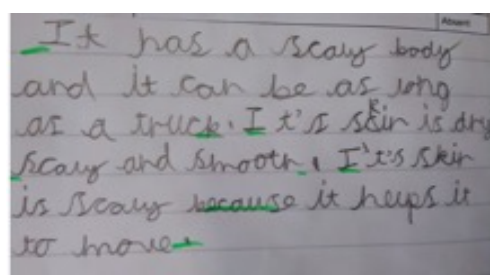 Absent
It has a scaly body
and it can be as long
as a truck. It's skin is dry
scaly and smooth. It's skin
is scaly because it helps it
to move.